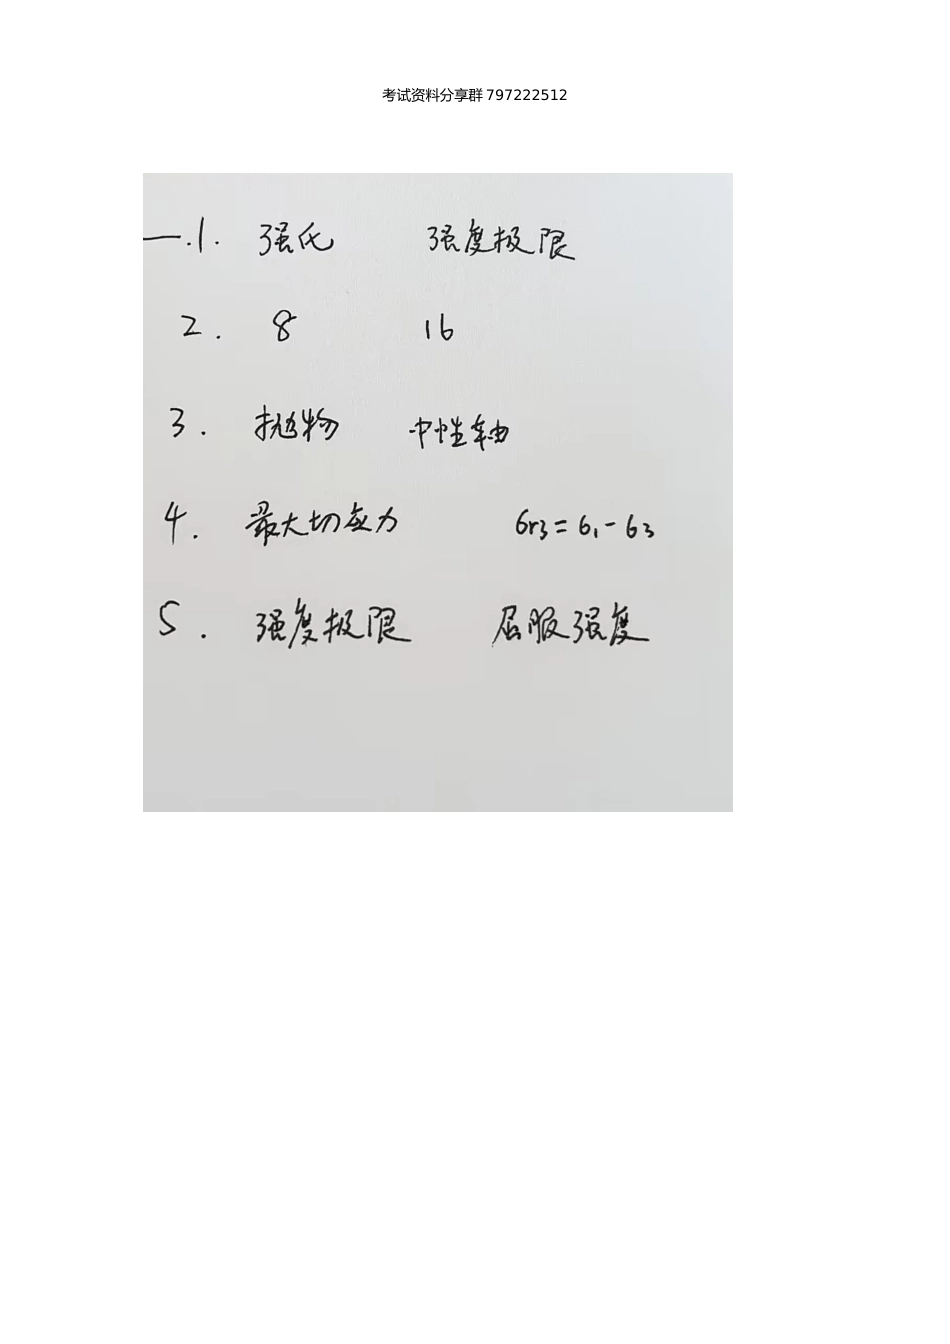 考试资料分享群 797222512
一.1. 强化 强度极限
2. 8 16
3. 抛物 中性轴
4. 最大切应力 σr3=σ1-σ3
5. 强度极限 屈服强度